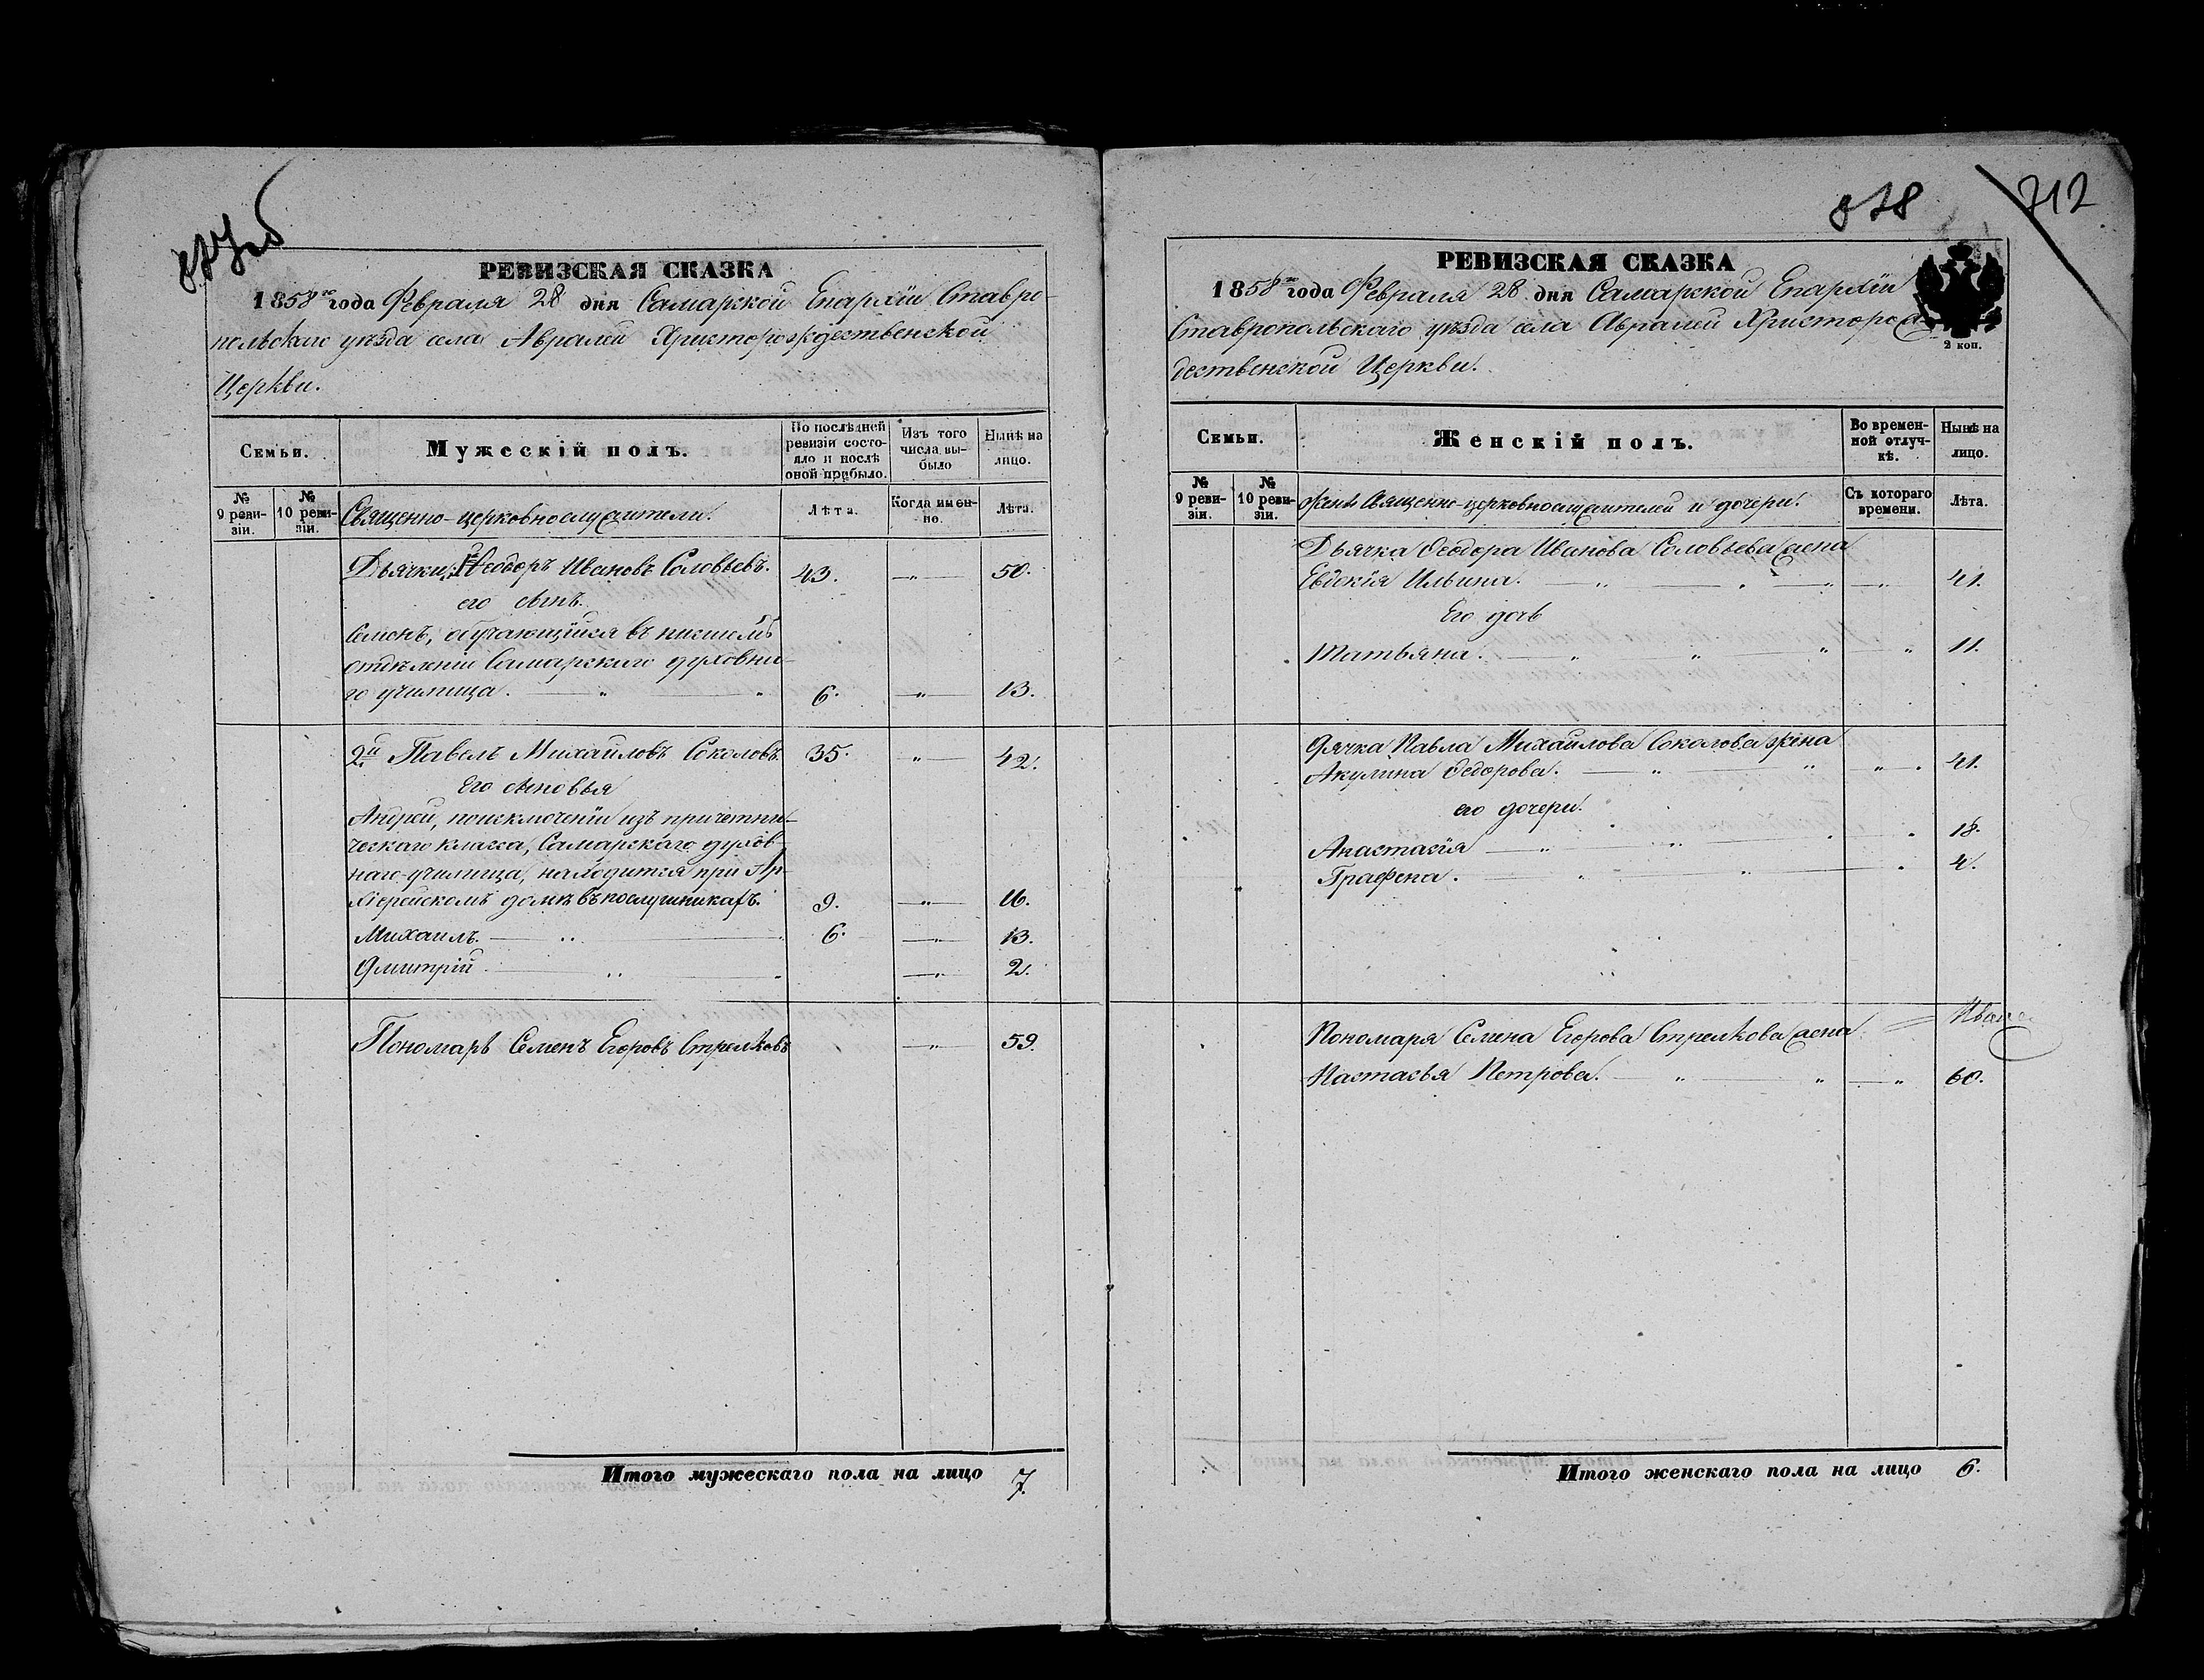 877об
РЕВИЗСКАЯ СКАЗКА
1858го года Февраля 28 дня Самарской Епархіи Ставро-
польскаго уѣзда села Авралей Христорождественской
Церкви.
Семьи.
Мужескій полъ.
По послѣдней ревизіи состо-
яло и послѣ оной прибыло.
Изъ того числа вы-
было
Нынѣ на лицо.
№ 9 реви-
зіи.
№ 10 реви-
зіи.
Священно-церковнослужители.
Лѣта.
Когда имен-
но.
Лѣта.
Дьячки: 1й Ѳеодоръ Ивановъ Соловьевъ. 43. —„— 50.
его сынъ.
Семенъ, обучающійся въ низшемъ
отдѣленіи Самарскаго духовна-
го училища. — „ „ 6. —„— 13.
2й Павелъ Михайловъ Соколовъ. 35. „— 42.
Его сыновья
Андрей, поисключеніи изъ причетни-
ческаго класса, Самарскаго духов-
наго училища, находится при Ар-
хіерейскомъ домѣ въ послушникахъ. 9. —„— 16.
Михаилъ. — „ — 6. —„— 13.
Дмитрій — „ — —„— 2.
Пономарь Семенъ Егоровъ Стрелковъ —„— 59.
Итого мужескаго пола на лицо 7.
878
712
РЕВИЗСКАЯ СКАЗКА
1858го года Февраля 28 дня Самарской Епархіи
Ставропольскаго уѣзда села Авралей Христорож-
дественской Церкви.
2 коп.
Семьи.
Женскій полъ.
Во времен-
ной отлуч-
кѣ.
Нынѣ на лицо.
№ 9 реви-
зіи.
№ 10 реви-
зіи.
Жены Священно-церковнослужителей и дочери.
Съ котораго времени.
Лѣта.
Дьячка Ѳеодора Иванова Соловьева жена
Евдокія Ильина. — „ — „ — „ —„— 41.
Его дочь
Татьяна. — „ — „ — „ — „ 11.
Дячка Павла Михайлова Соколова жена
Акулина Ѳедорова. — „ — „ „ — . 41.
его дочери.
Анастасія — „ — „ — . 18.
Графена. — „ — „ — . 4.
Пономаря Семена Егорова Стрелкова жена
Настасья Петрова. — „ — „ — „ 60.
Итого женскаго пола на лицо 6.